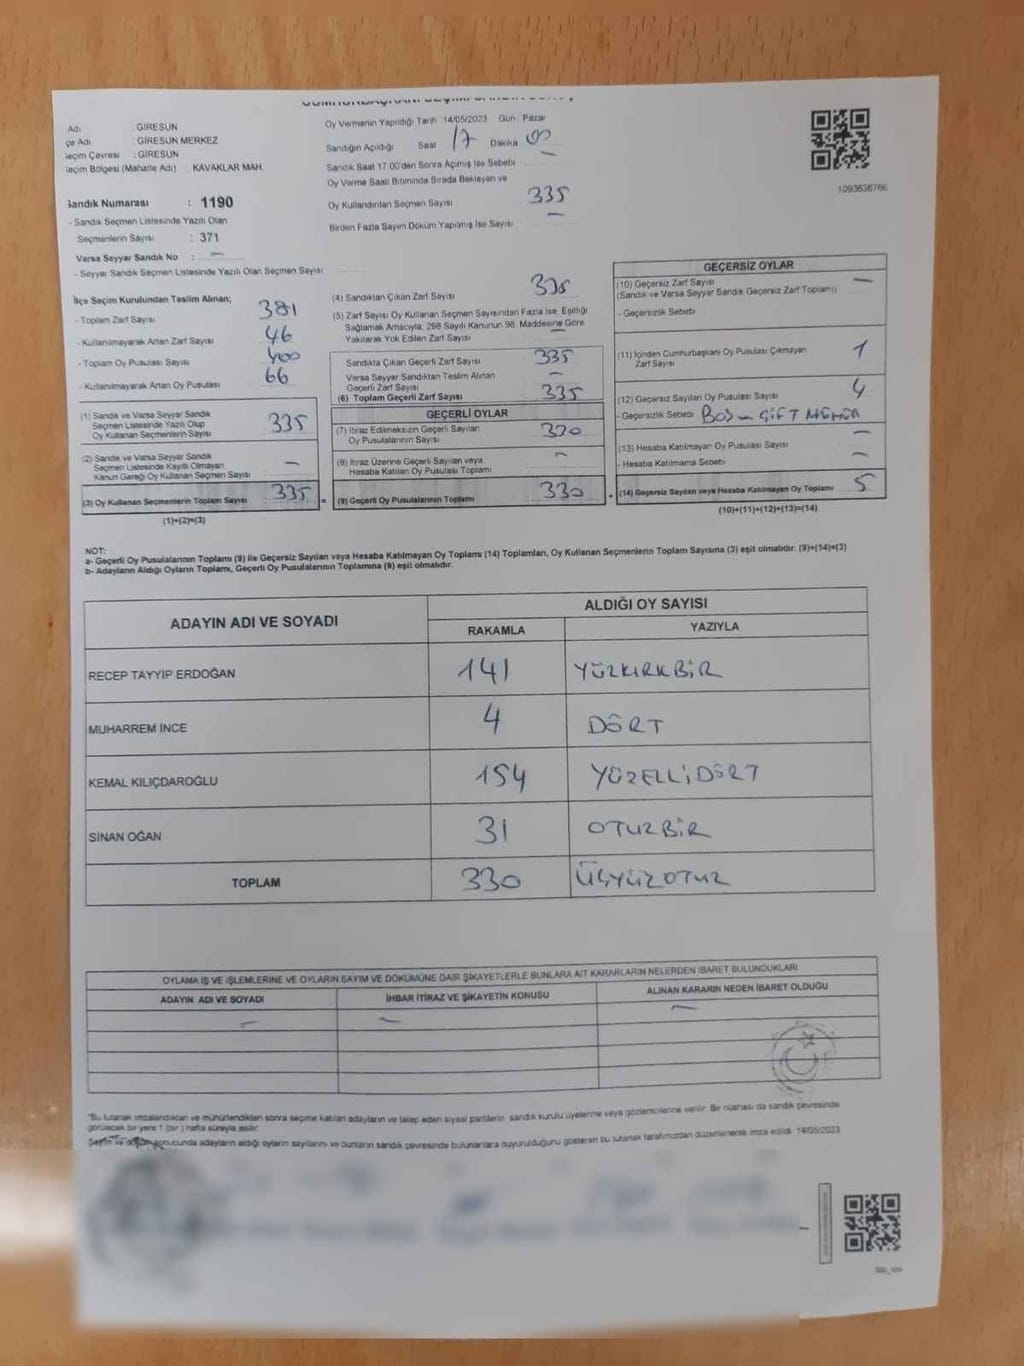 Adı : GİRESUN
çe Adı : GİRESUN MERKEZ
eçim Çevresi : GİRESUN
eçim Bölgesi (Mahalle Adı) : KAVAKLAR MAH.
Sandık Numarası : 1190
- Sandık Seçmen Listesinde Yazılı Olan
Seçmenlerin Sayısı : 371
Varsa Seyyar Sandık No : —
- Seyyar Sandık Seçmen Listesinde Yazılı Olan Seçmen Sayısı
Oy Vermenin Yapıldığı Tarih 14/05/2023 Gün Pazar
Sandığın Açıldığı Saat 17 Dakika 00
Sandık Saat 17.00'den Sonra Açmış İse Sebebi —
Oy Verme Saati Bitiminde Sırada Bekleyen ve
Oy Kullandırılan Seçmen Sayısı 335
Birden Fazla Sayım Döküm Yapılmış İse Sayısı —
1093636766
İlçe Seçim Kurulundan Teslim Alınan;
- Toplam Zarf Sayısı 381
- Kullanılmayarak Artan Zarf Sayısı 46
- Toplam Oy Pusulası Sayısı 400
- Kullanılmayarak Artan Oy Pusulası 66
(1) Sandık ve Varsa Seyyar Sandık
Seçmen Listesinde Yazılı Olup
Oy Kullanan Seçmenlerin Sayısı 335
(2) Sandık ve Varsa Seyyar Sandık
Seçmen Listesinde Kayıtlı Olmayan
Kanun Gereği Oy Kullanan Seçmen Sayısı —
(3) Oy Kullanan Seçmenlerin Toplam Sayısı 335 =
(1)+(2)=(3)
(4) Sandıktan Çıkan Zarf Sayısı 335
(5) Zarf Sayısı Oy Kullanan Seçmen Sayısından Fazla İse, Eşitliği
Sağlamak Amacıyla, 298 Sayılı Kanunun 98. Maddesine Göre
Yakılarak Yok Edilen Zarf Sayısı —
Sandıkta Çıkan Geçerli Zarf Sayısı 335
Varsa Seyyar Sandıktan Teslim Alınan
Geçerli Zarf Sayısı —
(6) Toplam Geçerli Zarf Sayısı 335
GEÇERLİ OYLAR
(7) İtiraz Edilmeksizin Geçerli Sayılan
Oy Pusulalarının Sayısı 330
(8) İtiraz Üzerine Geçerli Sayılan veya
Hesaba Katılan Oy Pusulası Toplamı —
(9) Geçerli Oy Pusulalarının Toplamı 330 +
GEÇERSİZ OYLAR
(10) Geçersiz Zarf Sayısı —
(Sandık ve Varsa Seyyar Sandık Geçersiz Zarf Toplamı)
- Geçersizlik Sebebi
(11) İçinden Cumhurbaşkanı Oy Pusulası Çıkmayan
Zarf Sayısı 1
(12) Geçersiz Sayılan Oy Pusulası Sayısı 4
- Geçersizlik Sebebi BOŞ - ÇİFT MÜHÜR
(13) Hesaba Katılmayan Oy Pusulası Sayısı —
- Hesaba Katılmama Sebebi —
(14) Geçersiz Sayılan veya Hesaba Katılmayan Oy Toplamı 5
(10)+(11)+(12)+(13)=(14)
NOT:
a- Geçerli Oy Pusulalarının Toplamı (9) ile Geçersiz Sayılan veya Hesaba Katılmayan Oy Toplamı (14) Toplamları, Oy Kullanan Seçmenlerin Toplam Sayısına (3) eşit olmalıdır. (9)+(14)=(3)
b- Adayların Aldığı Oyların Toplamı, Geçerli Oy Pusulalarının Toplamına (9) eşit olmalıdır.
ADAYIN ADI VE SOYADI
ALDIĞI OY SAYISI
RAKAMLA YAZIYLA
RECEP TAYYİP ERDOĞAN 141 YÜZKIRKBİR
MUHARREM İNCE 4 DÖRT
KEMAL KILIÇDAROĞLU 154 YÜZELLİDÖRT
SİNAN OĞAN 31 OTUZBİR
TOPLAM 330 ÜÇYÜZOTUZ
OYLAMA İŞ VE İŞLEMLERİNE VE OYLARIN SAYIM VE DÖKÜMÜNE DAİR ŞİKAYETLERLE BUNLARA AİT KARARLARIN NELERDEN İBARET BULUNDUKLARI
ADAYIN ADI VE SOYADI İHBAR İTİRAZ VE ŞİKAYETİN KONUSU ALINAN KARARIN NEDEN İBARET OLDUĞU
— — —
"Bu tutanak imzalandıktan ve mühürlendikten sonra seçime katılan adayların ve talep eden siyasi partilerin sandık kurulu üyelerine veya gözlemcilerine verilir. Bir nüshası da sandık çevresinde
görülecek bir yere 1 (bir) hafta süreyle asılır.
Sayım ve döküm sonucunda adayların aldığı oyların sayılarını ve bunların sandık çevresinde bulunanlara duyurulduğunu gösteren bu tutanak tarafımızdan düzenlenerek imza edildi. 14/05/2023